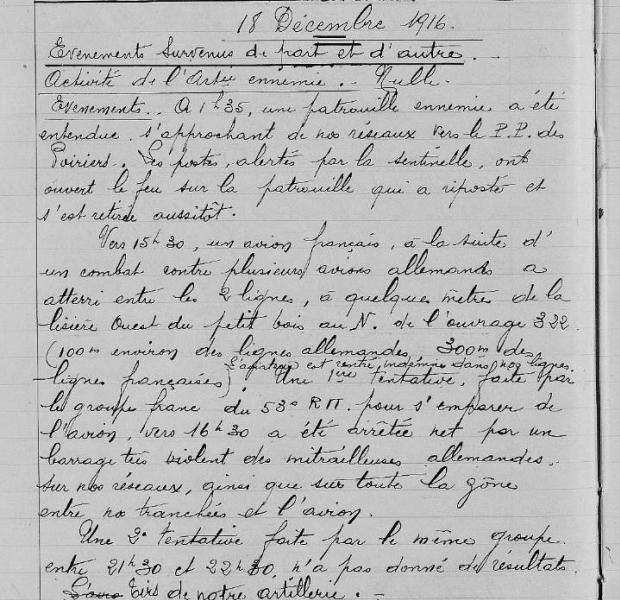 18 Décembre 1916.
Evenements Survenus de part et d'autre.
Activité de l'Artie ennemie. - Nulle.
Evenements. - A 1h35, une patrouille ennemie a été
entendue s'approchant de nos réseaux vers le P.P. des
Poiriers. Les postes, alertés par la sentinelle, ont
ouvert le feu sur la patrouille qui a riposté et
s'est retirée aussitôt.
Vers 15h30, un avion français, à la suite d'
un combat contre plusieurs avions allemands a
atterri entre les 2 lignes, à quelques mètres de la
lisière Ouest du petit bois au N. de l'ouvrage 322
(100m environ des lignes allemandes, 300m des
L'aviateur est rentré indemne dans nos lignes.
lignes françaises). Une 1ère tentative, faite par
le groupe franc du 53e RIT. pour s'emparer de
l'avion, vers 16h30 a été arrêtée net par un
barrage très violent des mitrailleuses allemandes.
sur nos réseaux, ainsi que sur toute la zône
entre nos tranchées et l'avion.
Une 2e tentative faite par le même groupe.
entre 21h30 et 22h30, n'a pas donné de résultats.
Tirs de notre artillerie. -